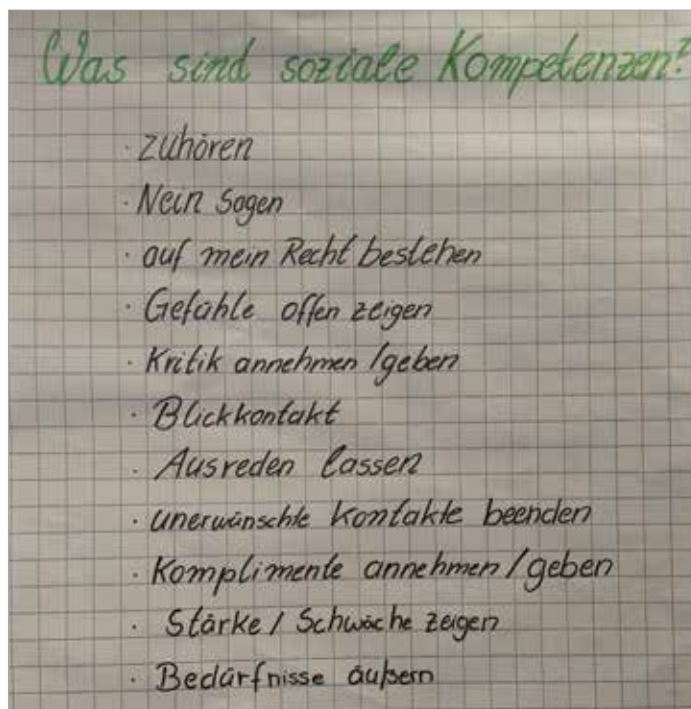 Was sind soziale Kompetenzen?
· zuhören
· Nein sagen
· auf mein Recht bestehen
· Gefühle offen zeigen
· Kritik annehmen / geben
· Blickkontakt
· Ausreden lassen
· unerwünschte Kontakte beenden
· Komplimente annehmen / geben
· Stärke / Schwäche zeigen
· Bedürfnisse äußern